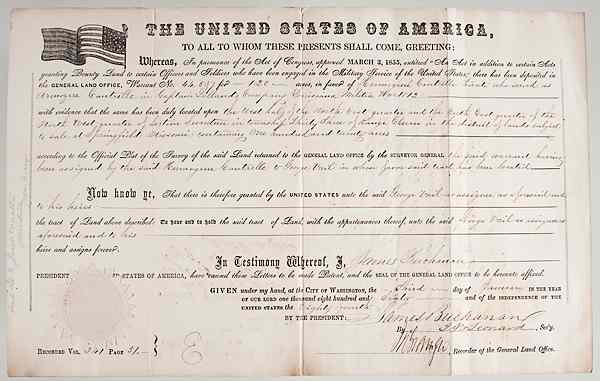 THE UNITED STATES OF AMERICA,
TO ALL TO WHOM THESE PRESENTS SHALL COME, GREETING:
Whereas, In pursuance of the Act of Congress, approved MARCH 3, 1855, entitled "An Act in addition to certain Acts
granting Bounty Land to certain Officers and Soldiers who have been engaged in the Military Service of the United States," there has been deposited in
the GENERAL LAND OFFICE, Warrant No. for 120 acres, in favor of
in Captain Company Militia War 1812
with evidence that the same has been duly located upon the West half of the North East quarter and the North East quarter of the
North West quarter of Section Seventeen in township Thirty of range in the district of lands subject
to sale at Springfield Missouri containing One hundred and twenty acres
according to the Official Plat of the Survey of the said Land returned to the GENERAL LAND OFFICE by the SURVEYOR GENERAL the said warrant having
been assigned by the said to George Vail in whose favor said tract has been located
Now know ye, That there is therefore granted by the UNITED STATES unto the said George Vail as assignee as aforesaid and
to his heirs
the tract of Land above described: To have and to hold the said tract of Land, with the appurtenances thereof, unto the said George Vail as assignee as
aforesaid and to his
heirs and assigns forever.
In Testimony Whereof, I, James Buchanan
PRESIDENT OF THE UNITED STATES OF AMERICA, have caused these Letters to be made Patent, and the SEAL OF THE GENERAL LAND OFFICE to be hereunto affixed.
GIVEN under my hand, at the CITY OF WASHINGTON, the third day of January IN THE YEAR
OF OUR LORD one thousand eight hundred and Sixty and of the INDEPENDENCE OF THE
UNITED STATES the Eighty fourth
BY THE PRESIDENT: James Buchanan
By Leonard Sec'y.
RECORDED VOL. 341 PAGE 51 E Recorder of the General Land Office.